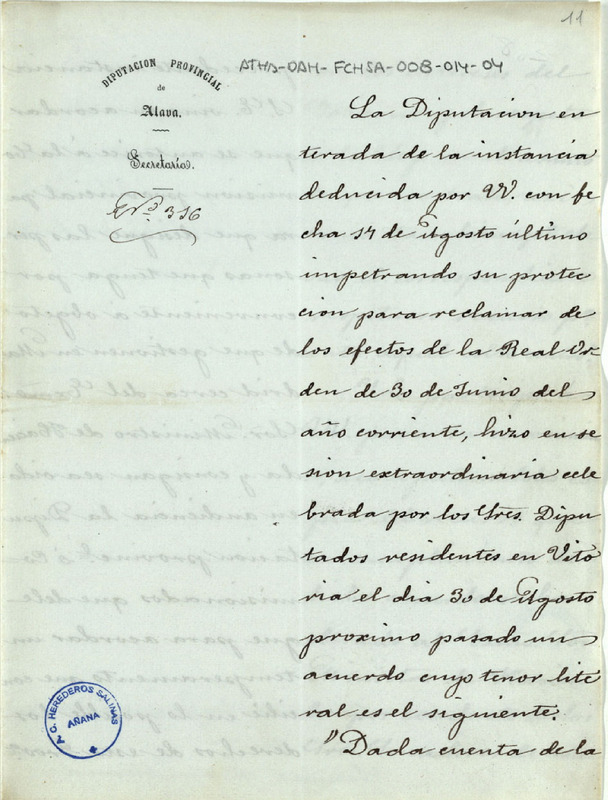 11
ATHA-DAH-FCHSA-008-014-04
DIPUTACION PROVINCIAL
de
Alava.
Secretaría.
Nº. 316
La Diputacion en
terada de la instancia
deducida por VV. con fe
cha 14 de Agosto último
impetrando su protec
cion para reclamar de
los efectos de la Real Or-
den de 30 de Junio del
año corriente, hizo en se
sion extraordinaria cele
brada por los Sres. Dipu
tados residentes en Vito
ria el dia 30 de Agosto
proximo pasado un
acuerdo cuyo tenor lite
ral es el siguiente.
"Dada cuenta de la
A. C. HEREDEROS SALINAS
AÑANA